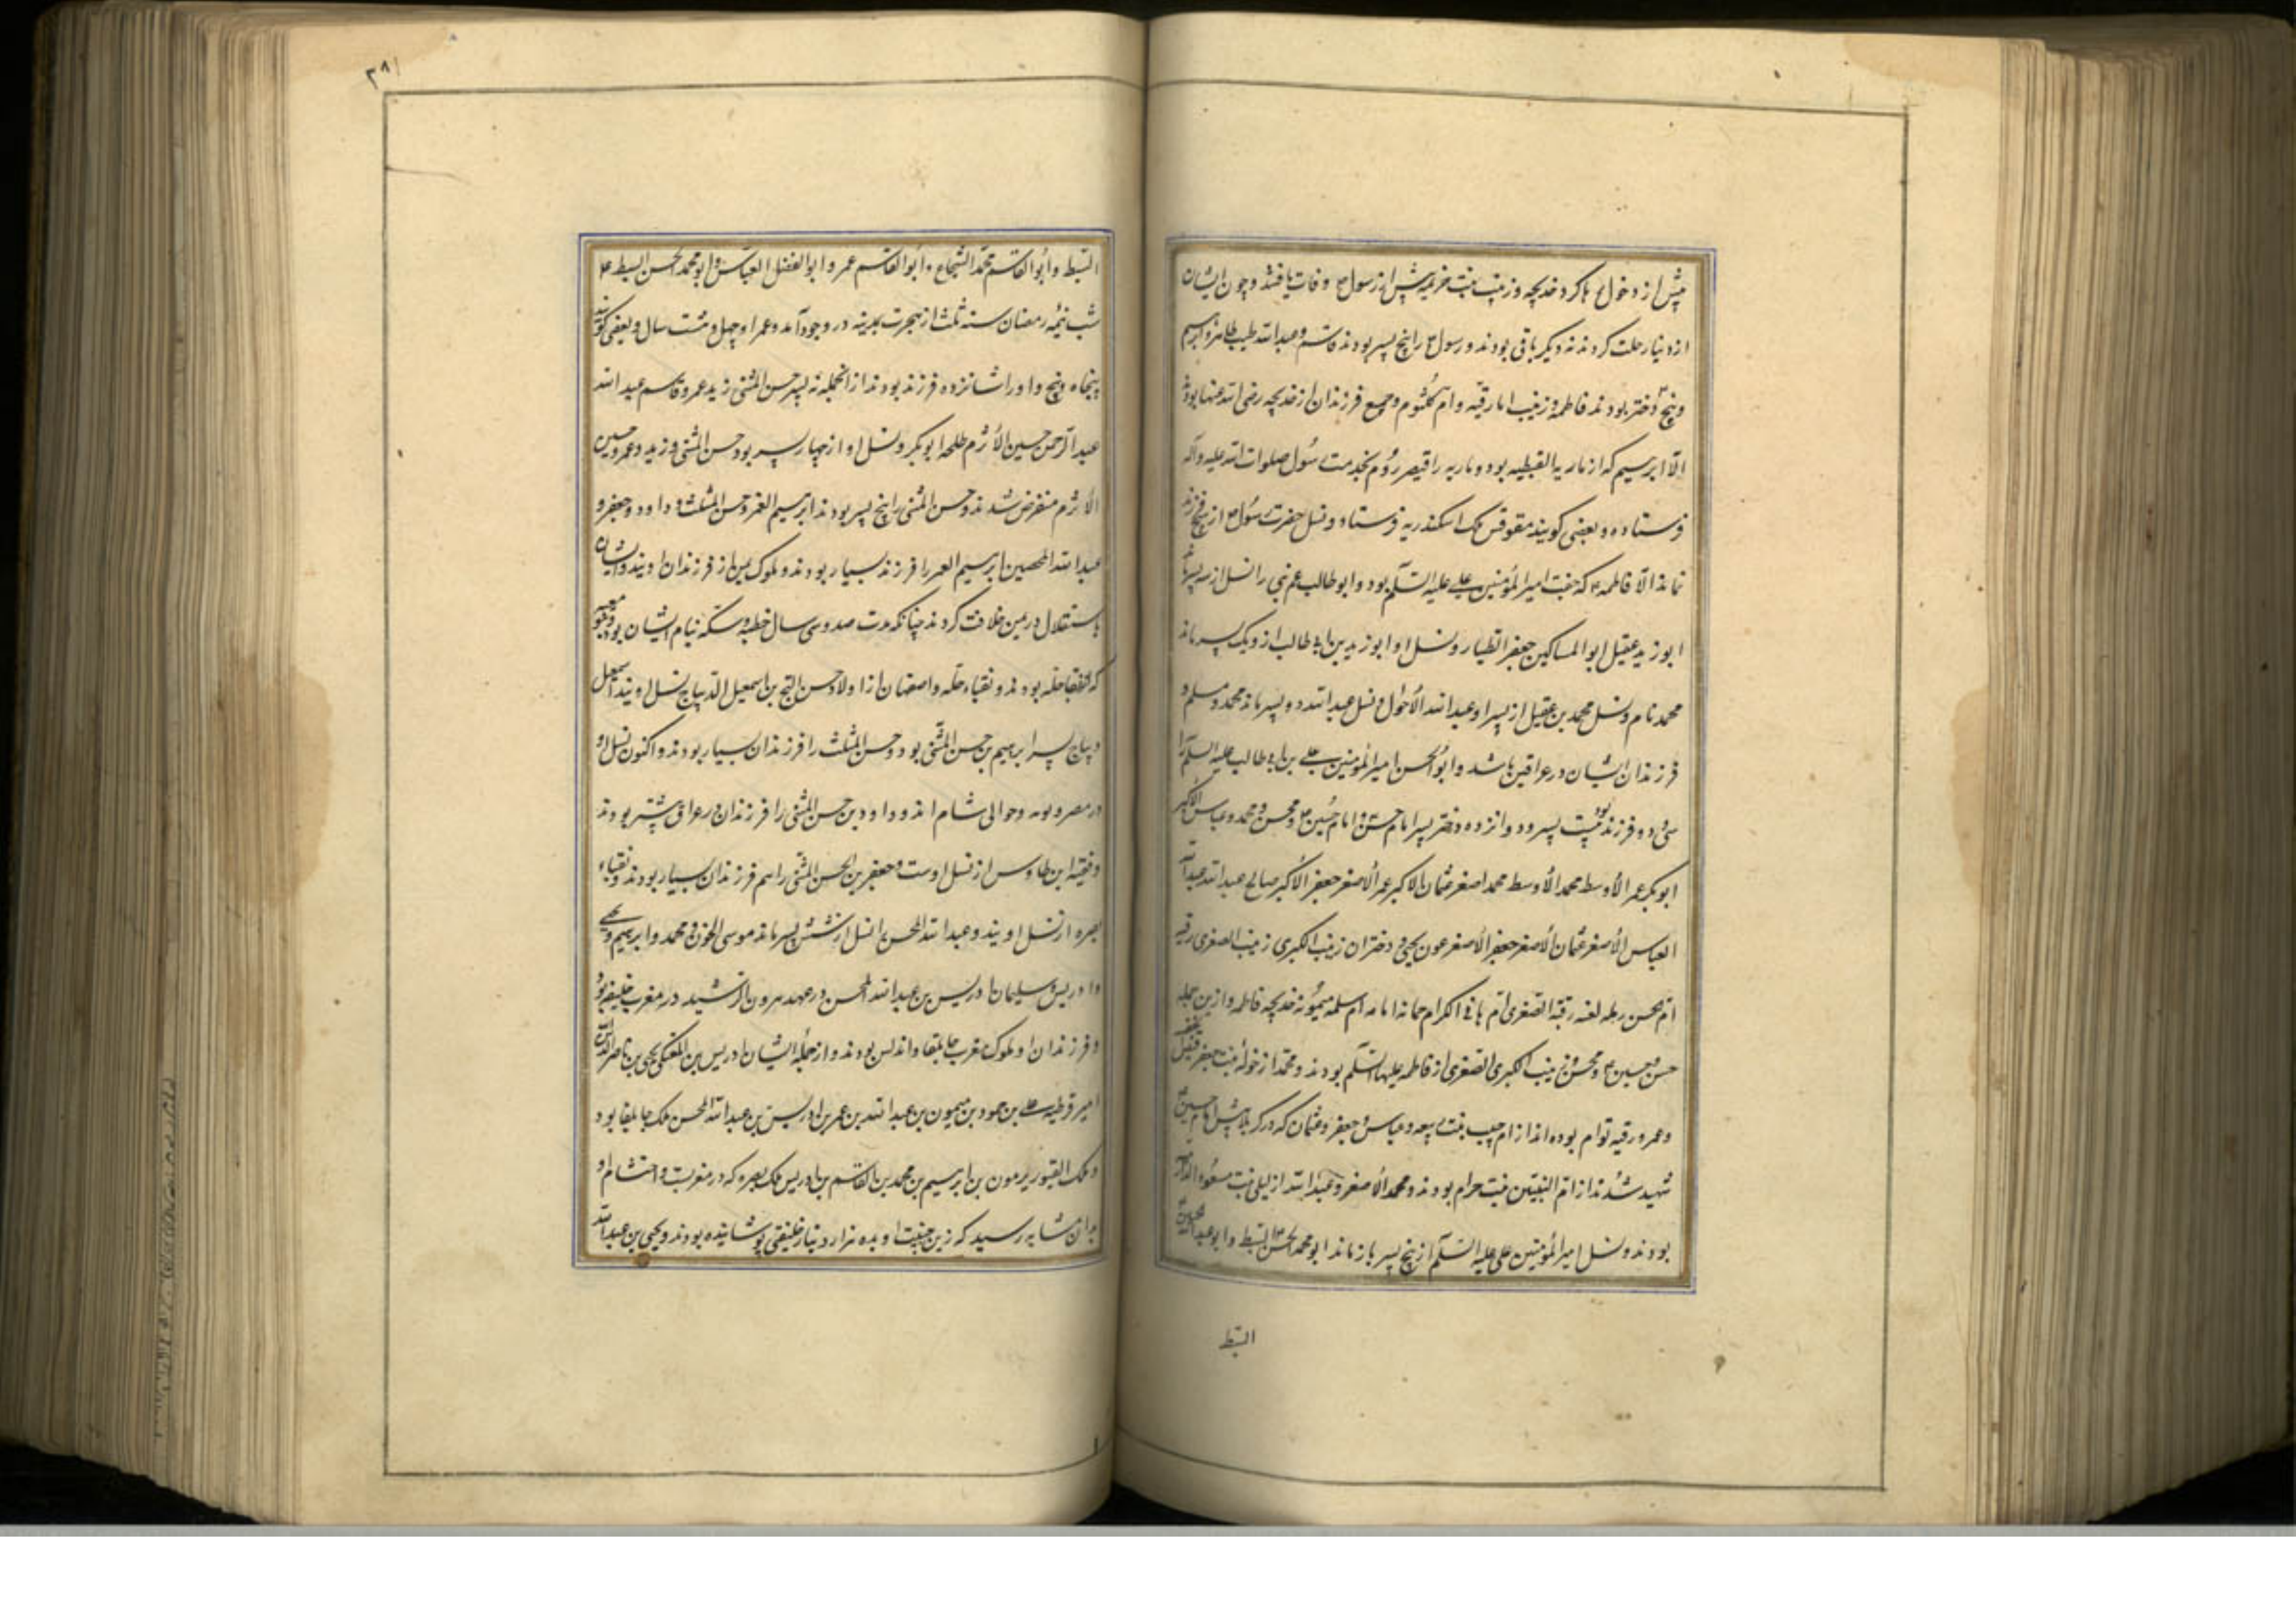 پیش از دخول رها کرد و خدیجه و زینب بنت خزیمه پیش از رسول ص وفات یافتند و چون ایشان
از دنیا رحلت کردند نه دیگر باقی بودند و رسول ص را پنج پسر بودند قاسم و عبدالله طیب طاهر و ابرهیم
و پنج دختر بودند فاطمه و زینب امامه رقیه و ام کلثوم و جمیع فرزندان از خدیجه رضی الله عنها بودند
الا ابرهیم که از ماریة القبطیه بود و ماریه را قیصر روم بخدمت رسول صلوات الله علیه و آله
فرستاده و بعضی کویند مقوقس ملک اسکندریه فرستاد و نسل حضرت رسول ص از هیچ فرزند
نماند الا فاطمه ع که جفت امیرالمؤمنین علی علیه السلم بود و ابوطالب عم نبی را نسل از سه پسر ماند
ابوزید عقیل ابوالمساکین جعفر الطیار و نسل او ابوزید بن ابی طالب از و یک پسر ماند
محمد نام و نسل محمد بن عقیل از پسر او عبدالله الاحول و نسل عبدالله دو پسر ماند محمد و مسلم و
فرزندان ایشان در عراقین باشد و ابوالحسن امیرالمؤمنین علی بن ابی طالب علیه السلم را
سی و دو فرزند بود بیست پسر و دوازده دختر پسر امام حسن و امام حسین ع و محسن و محمد و عباس الاکبر
ابوبکر عمر الاوسط محمد الاوسط محمد اصغر عثمان الاکبر عمر الاصغر جعفر الاکبر صالح عبدالله عبدالله
العباس الاصغر عثمان الاصغر جعفر الاصغر عون یحیی و دختران زینب الکبری زینب الصغری رقیه
ام محسن رمله رقیة الصغری ام هانی ام الکرام جمانه امامه ام سلمه میمونه خدیجه فاطمه و ازین جمله
حسن و حسین ع و محسن و زینب الکبری الصغری از فاطمه علیها السلم بودند و محمد از خوله بنت جعفر
و عمر و رقیه توام بوده‌اند از ام حبیب بنت ربیعه و عباس و جعفر و عثمان که در کربلا پیش امام حسین ع
شهید شدند از ام البنین بنت حرام بودند و محمد الاصغر و عبدالله از لیلی بنت مسعود
بودند و نسل امیرالمؤمنین علی علیه السلم از پنج پسر باز ماند ابومحمد الحسن السبط و ابوعبدالله الحسین
السبط
۳۸۱
السبط و ابوالقاسم محمد الشجاع و ابوالقاسم عمر و ابوالفضل العباس و ابومحمد الحسن السبط ع
شب نیمه رمضان سنه ثلث از هجرت بمدینه در وجود آمد و عمر او چهل و هشت سال و بعضی کویند
پنجاه و پنج و او را شانزده فرزند بودند از آنجمله نه پسر حسن المثنی زید عمر و قاسم عبدالله
عبدالرحمن حسین الاثرم طلحه ابوبکر و نسل او از چهار پسر بود حسن المثنی و زید و عمرو حسین
الاثرم منقرض شدند و حسن المثنی را پنج پسر بودند ابرهیم الغمر و حسن المثلث و داود و جعفر و
عبدالله المحض ابرهیم الغمر را فرزند بسیار بودند و ملوک یمن از فرزندان اویند و ایشان
باستقلال در یمن خلافت کردند چنانکه مدت صد و سی سال خطبه و سکه بنام ایشان بود
که نقباء حله بودند و نقباء حله و اصفهان از اولاد حسن التج بن اسمعیل الدیباج نسل اویند اسمعیل
دیباج پسر ابرهیم بن حسن المثنی بود و حسن المثلث را فرزندان بسیار بودند و اکنون نسل او
در مصر و نوبه و حوالی شام اند و داود بن حسن المثنی را فرزندان در عراق بیشتر بودند
و فقیه ابن طاوس از نسل اوست و جعفر بن الحسن المثنی را هم فرزندان بسیار بودند و نقباء
بصره از نسل اویند و عبدالله المحض را نسل از شش پسر ماند موسی الجون و محمد و ابرهیم و یحیی
و ادریس و سلیمان ادریس بن عبدالله المحض در عهد هرون الرشید در مغرب خلیفه بود
و فرزندان او ملوک مغرب جابلقا و اندلس بودند و از جمله ایشان ادریس بن المعتلی یحیی بن ناصر الدین
امیر قرطبه علی بن حمود بن میمون بن عبدالله بن عمر بن ادریس بن عبدالله المحض ملک جابلقا بود
و ملک القبور بن ابرهیم بن محمد بن القاسم بن ادریس ملک بصره که در مغربست و احتشام او
بدان مشابه رسید که زین جنیبت او بده هزار دینار خلیفتی پوشانیده بودند و یحیی بن عبدالله